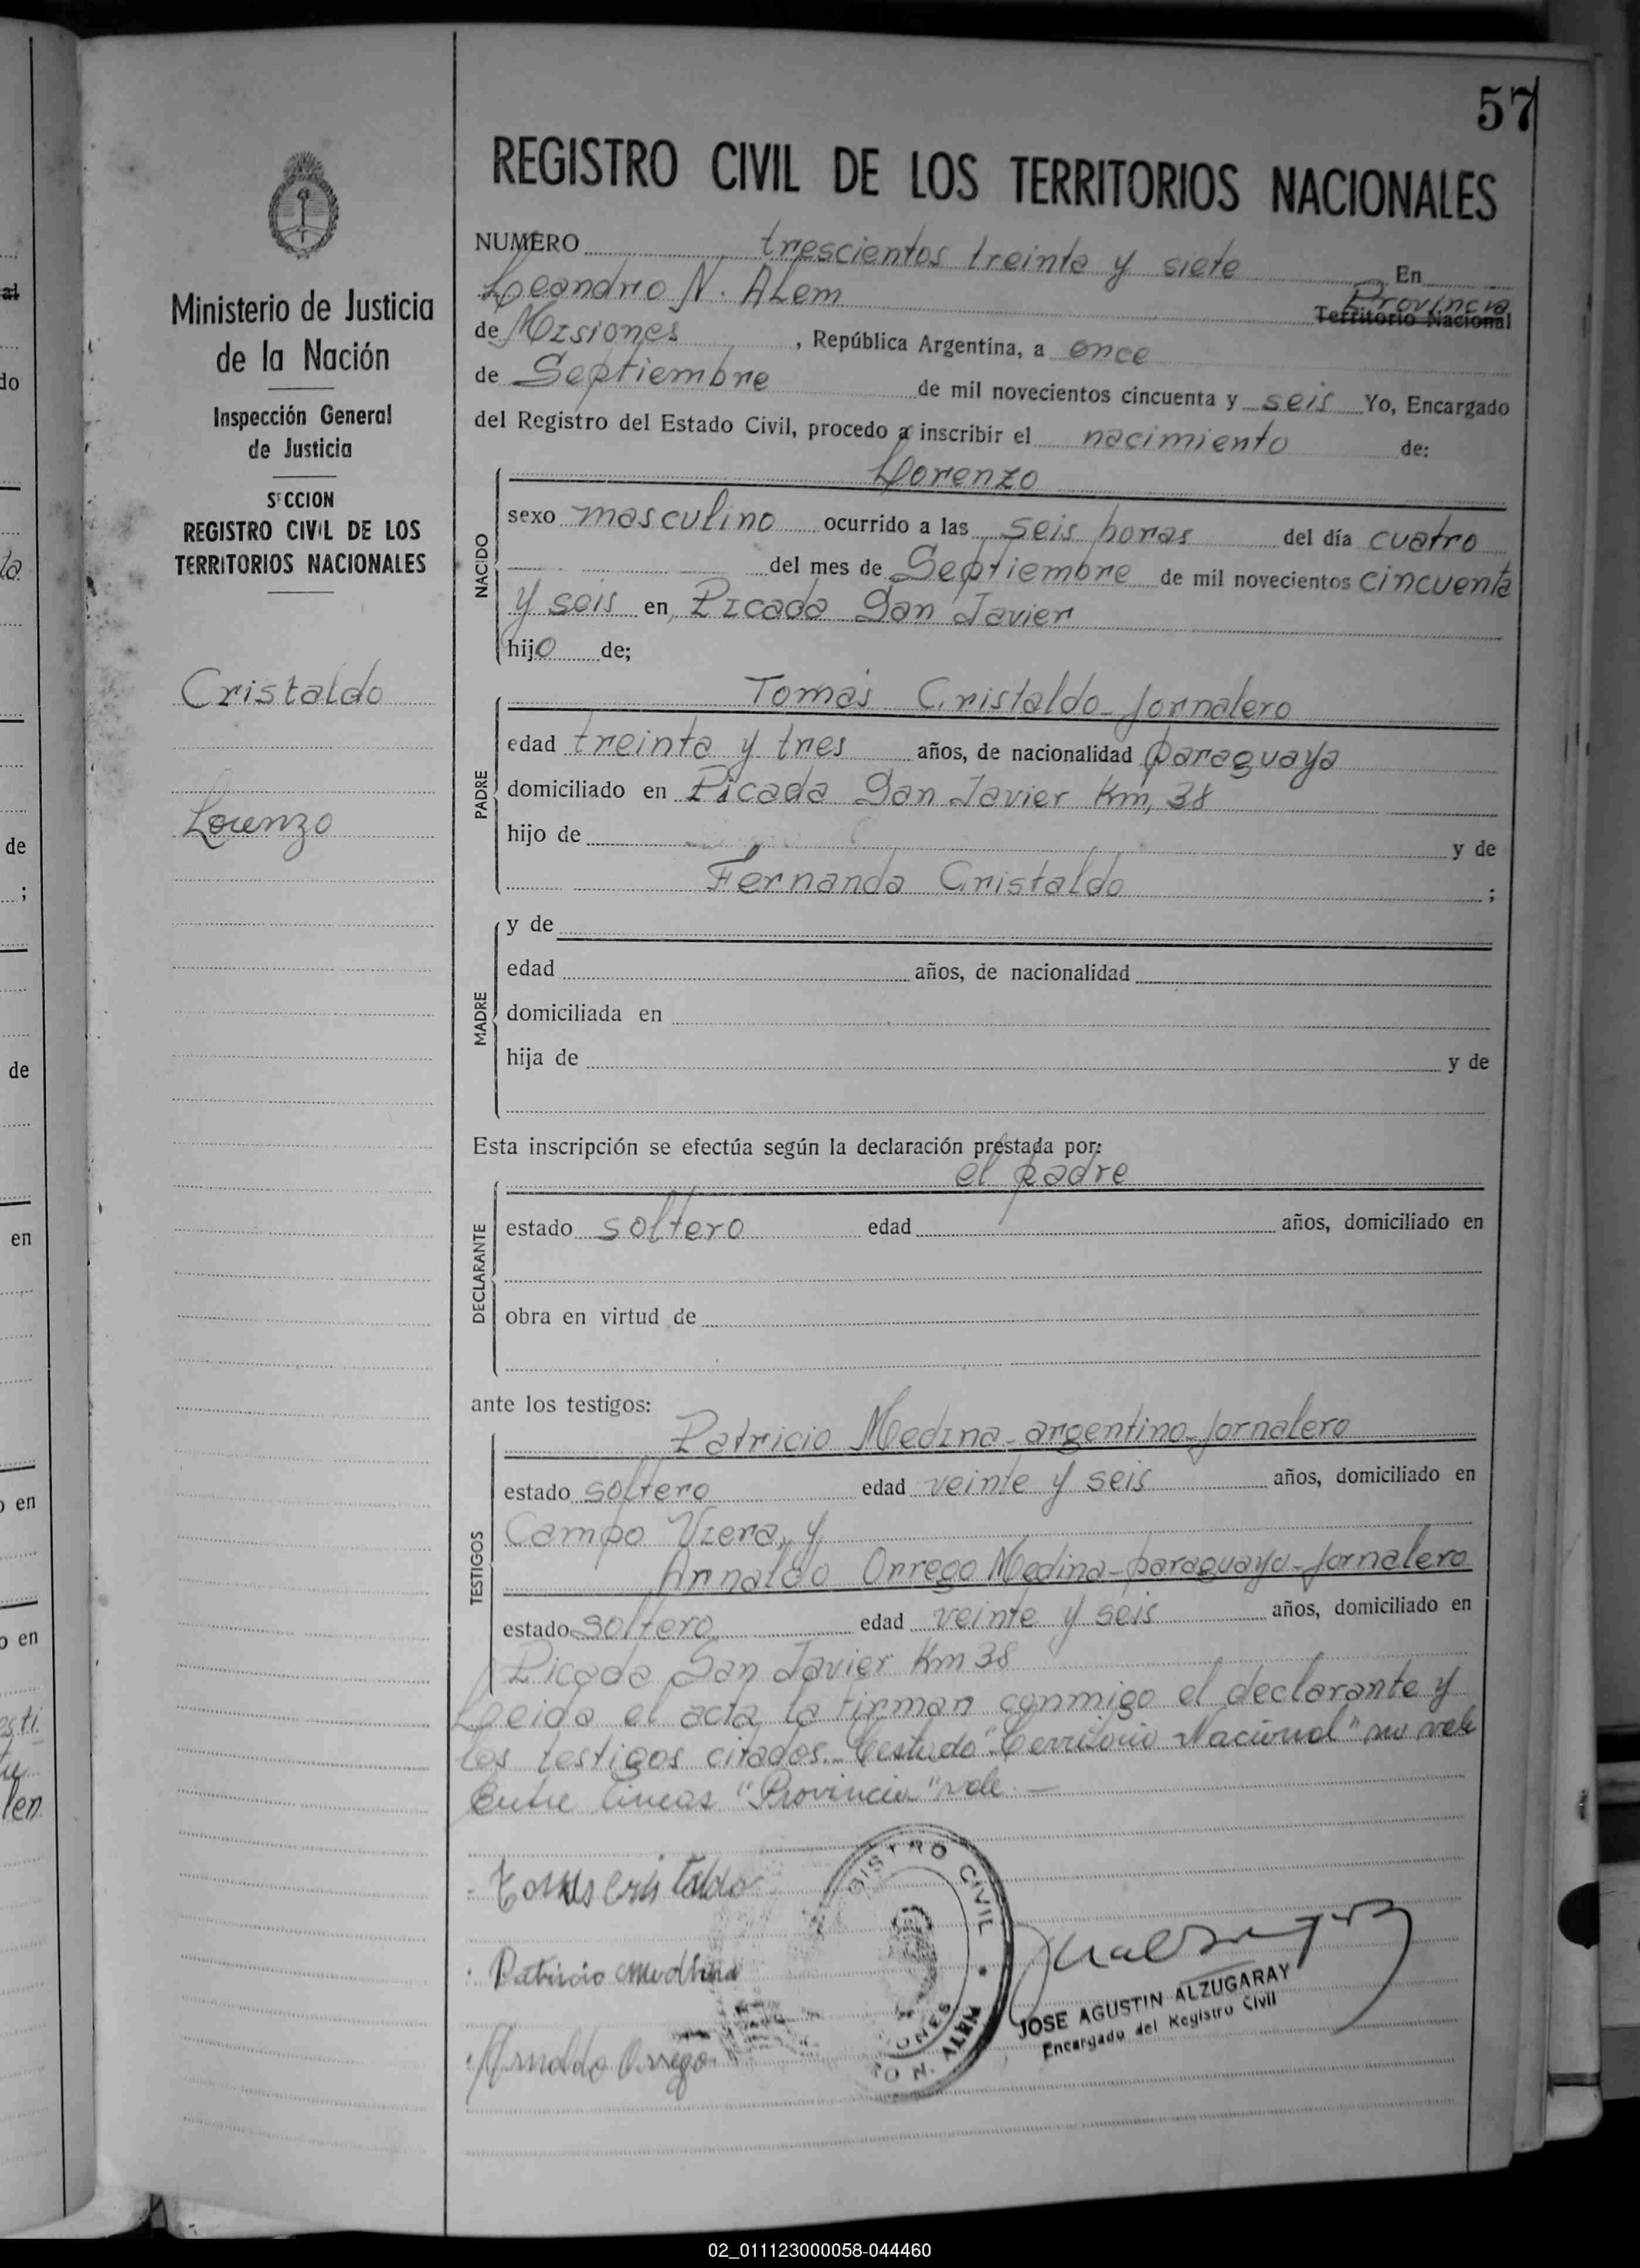 57
REGISTRO CIVIL DE LOS TERRITORIOS NACIONALES
Ministerio de Justicia
de la Nación
Inspección General
de Justicia
SECCION
REGISTRO CIVIL DE LOS
TERRITORIOS NACIONALES
Cristaldo
Lorenzo
NUMERO trescientos treinta y siete En
Leandro N. Alem Provincia
Territorio Nacional
de Misiones, República Argentina, a once
de Septiembre de mil novecientos cincuenta y seis Yo, Encargado
del Registro del Estado Civil, procedo a inscribir el nacimiento de:
NACIDO
Lorenzo
sexo masculino ocurrido a las seis horas del día cuatro
del mes de Septiembre de mil novecientos cincuenta
y seis en Picada San Javier
hijo de;
PADRE
Tomás Cristaldo-Jornalero
edad treinta y tres años, de nacionalidad paraguaya
domiciliado en Picada San Javier Km, 38
hijo de y de
Fernanda Cristaldo ;
MADRE
y de
edad años, de nacionalidad
domiciliada en
hija de y de
Esta inscripción se efectúa según la declaración prestada por:
DECLARANTE
el padre
estado soltero edad años, domiciliado en
obra en virtud de
ante los testigos:
TESTIGOS
Patricio Medina-argentino-Jornalero
estado soltero edad veinte y seis años, domiciliado en
Campo Viera, y
Arnaldo Orrego Medina-paraguayo-Jornalero
estado soltero edad veinte y seis años, domiciliado en
Picada San Javier Km 38
Leida el acta la firman conmigo el declarante y
los testigos citados. Testado "Territorio Nacional" no vale
Entre lineas "Provincia" vale. —
Tomas Cristaldo
Patricio Medina
Arnaldo Orrego
GISTRO CIVIL
IONES
O N. ALEM
JOSE AGUSTIN ALZUGARAY
Encargado del Registro Civil
02_011123000058-044460